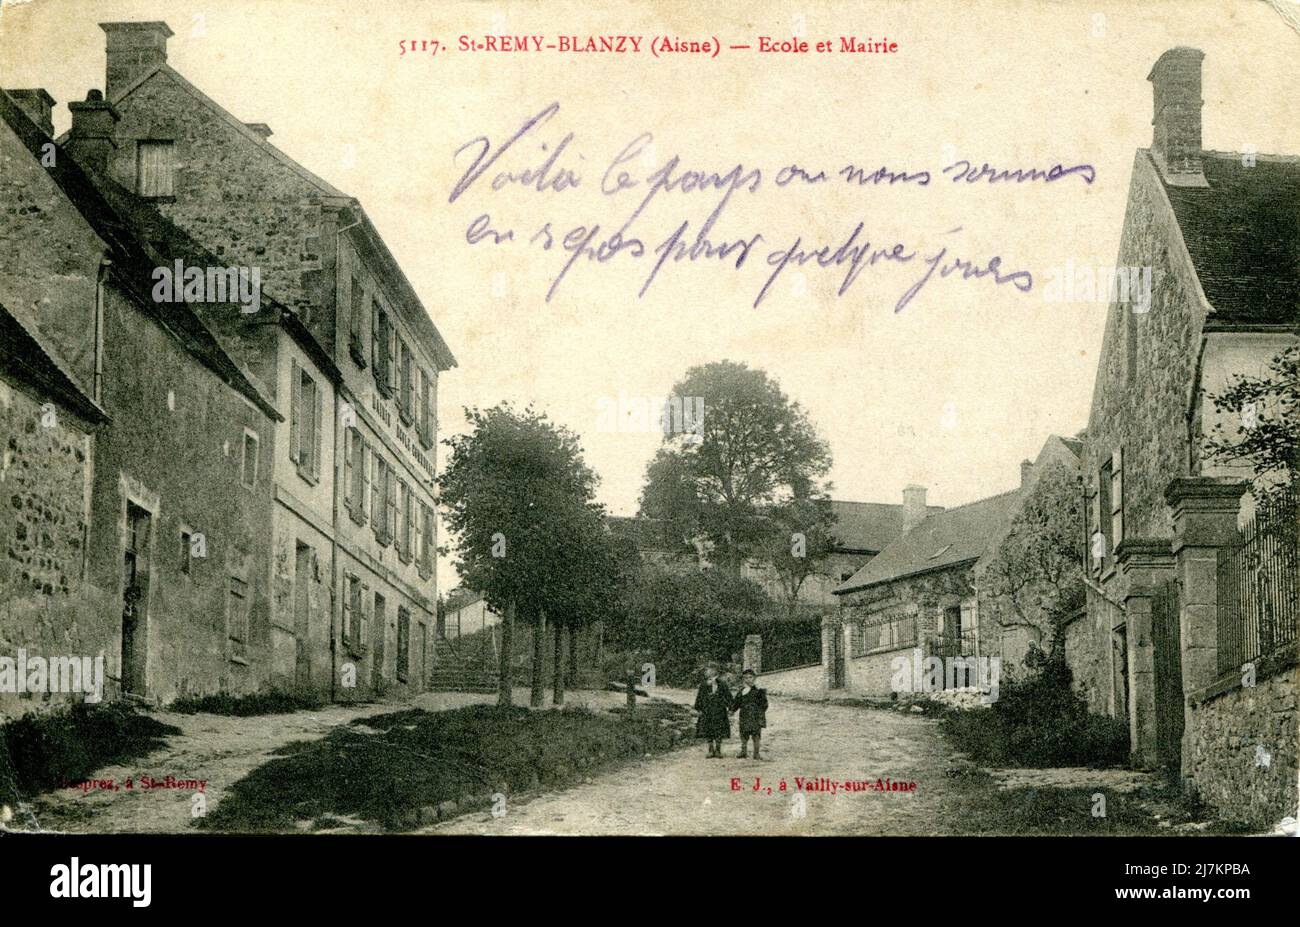 5117. St-REMY-BLANZY (Aisne) — Ecole et Mairie
Voilà le pays ou nous sommes
en repos pour quelque jours
MAIRIE ECOLE COMMUNALE
à St-Remy
E. J., à Vailly-sur-Aisne
alamy
Image ID: 2J7KPBA
www.alamy.com